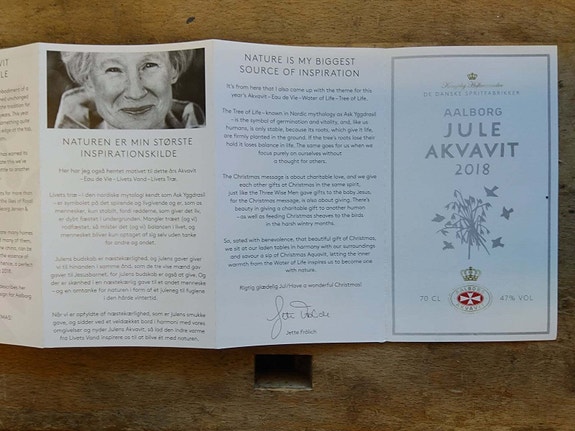 AKVAVIT
NATUREN ER MIN STØRSTE
INSPIRATIONSKILDE
Her har jeg også hentet motivet til dette års Akvavit
–Eau de Vie–Livets Vand–Livets Træ.
Livets træ–i den nordiske mytologi kendt som Ask Yggdrasil
–er symbolet på det spirende og livgivende og er, som os
mennesker, kun stabilt, fordi rødderne, som giver det liv,
er dybt forankret i undergrunden. Mangler træet (og vi)
rodfæstet, så mister det (og vi) balancen i livet, og
mennesket bliver kun optaget af sig selv uden tanke
for andre og andet.
Julens budskab er næstekærlighed, og julens gaver giver
vi til hinanden i samme ånd, som de tre vise mænd gav
gaver til Jesusbarnet, for julens budskab er også at give. Og
det er skønhed i en næstekærlig gave til et andet menneske
og en omtanke for naturen i form af et juleneg til fuglene
i den hårde vintertid.
Når vi er opfyldte af næstekærlighed, som er julens smukke
gave, og sidder ved et veldækket bord i harmoni med vores
omgivelser og nyder Julens Akvavit, så lad den indre varme
fra Livets Vand inspirere os til at blive ét med naturen.
NATURE IS MY BIGGEST
SOURCE OF INSPIRATION
It's from here that I also came up with the theme for this
year's Akvavit–Eau de Vie–Water of Life–Tree of Life.
The Tree of Life–known in Nordic mythology as Ask Yggdrasil
–is the symbol of germination and vitality, and, like us
humans, is only stable, because its roots, which give it life,
are firmly planted in the ground. If the tree's roots lose their
hold it loses balance in life. The same goes for us when we
focus purely on ourselves without
a thought for others.
The Christmas message is about charitable love, and we give
each other gifts at Christmas in the same spirit,
just like the Three Wise Men gave gifts to the baby Jesus,
for the Christmas message, is also about giving. There's
beauty in giving a charitable gift to another human
–as well as feeding Christmas sheaves to the birds
in the harsh wintry months.
So, sated with benevolence, that beautiful gift of Christmas,
we sit at our laden tables in harmony with our surroundings
and savour a sip of Christmas Aquavit, letting the inner
warmth from the Water of Life inspires us to become one
with nature.
Rigtig glædelig Jul/Have a wonderful Christmas!
Jette Frölich
DE DANSKE SPRITFABRIKKER
AALBORG
JULE
AKVAVIT
2018
70 CL
47% VOL